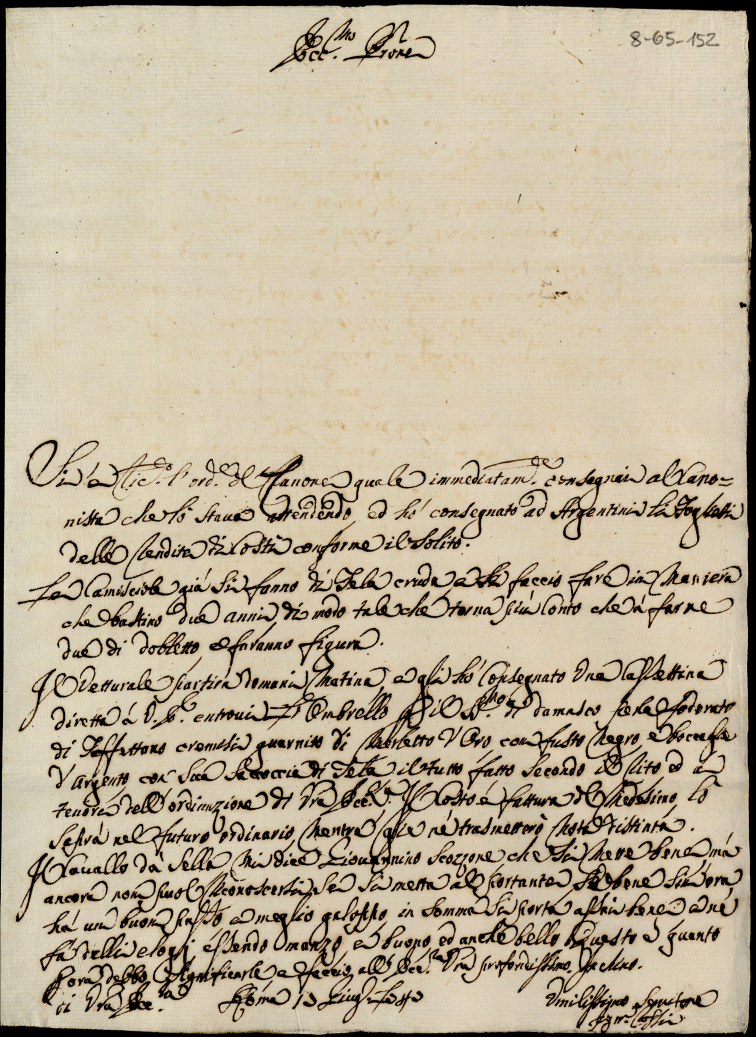 8-65-152
Ecc.mo Prone
Si è ric.o l'ord.e del quale immediatam.te consegnai al Cano=
nista che lo stava attendendo, ed hò consegnato ad Argentini li foglietti
delle Rendite di Costì conforme il solito.
Le Camisciole già si fanno di Tela cruda e le faccio fare in Maniera
che bastino due anni, di modo tale che torna più conto che à farne
due di dobletto e faranno figura.
Il Vetturale partirà domani Matina, e gli hò consegnato una Cassettina
diretta à V. E. entrovi l'Ombrello di damasco foderato
di Taffettano cremisi guarnito di Merletto d'Oro con fusto Negro e boccaglie
d'Argento con sua saccoccia di Tela il tutto fatto secondo il solito ed à
tenore dell'ordinazione di Vra Ecc.za Il Costo e fattura del Medesimo, lo
saprà nel futuro ordinario, Mentre glie ne trasmetterò Nota distinta.
Il Cavallo da Sella Mi dice Giovannino Scozzone che si Mette bene mà
ancora non puol riconoscersi, se si metta al portante, bene sin'ora
hà un buon passo e meglio galoppo, in somma si porta assai bene e ne
fà delli elogi essendo manzo, e buono, ed anche bello. Questo è quanto
hora debbo significarle e faccio all'Ecc.za Vra profondissimo Inchino.
di Vra Ecc.za Roma 13
Umilissimo Servitore